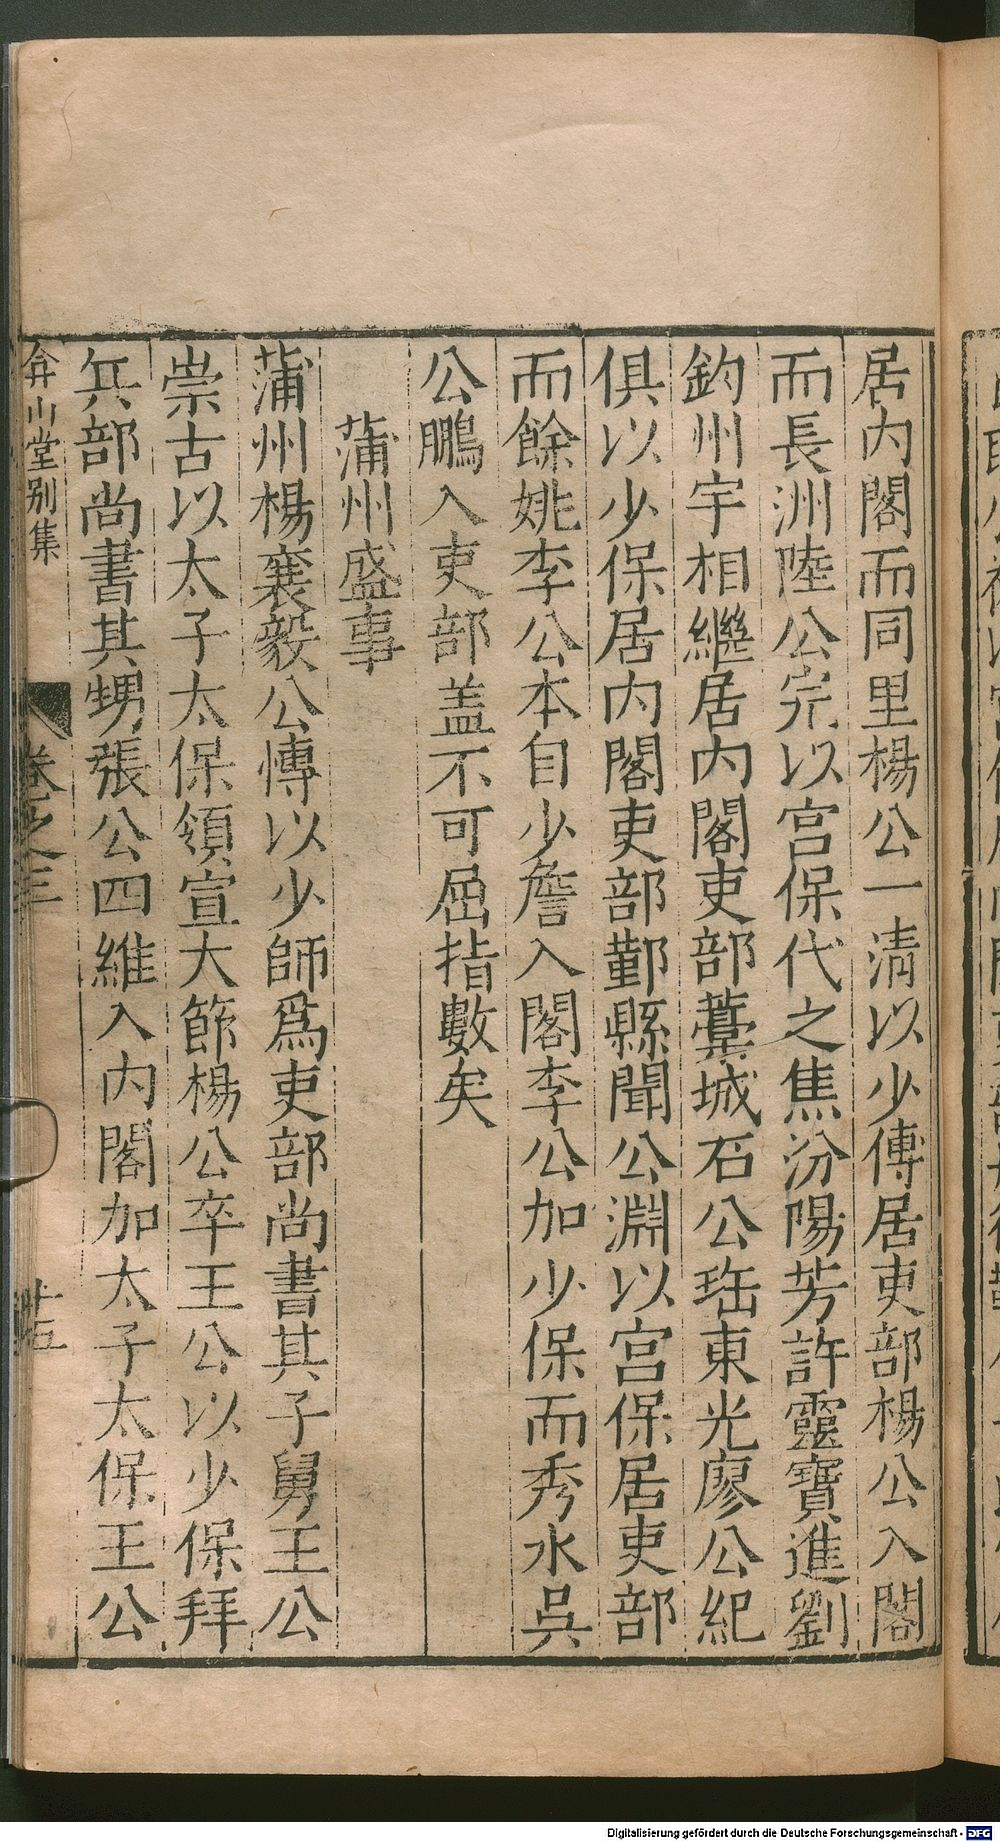 居内閣而同里楊公一清以少傅居吏部楊公入閣
而長洲陸公完以宫保代之焦汾陽芳許靈寳進劉
鈞州宇相繼居内閣吏部藁城石公珤東光廖公紀
俱以少保居内閣吏部鄞縣聞公淵以宫保居吏部
而餘姚李公本自少詹入閣李公加少保而秀水吳
公鵬入吏部盖不可屈指數矣
蒲州盛事
蒲州楊襄毅公愽以少師爲吏部尚書其子舅王公
崇古以太子太保領宣大節楊公卒王公以少保拜
兵部尚書其甥張公四維入内閣加太子太保王公
弇山堂别集
卷之三
Digitalisierung gefördert durch die Deutsche Forschungsgemeinschaft - DFG